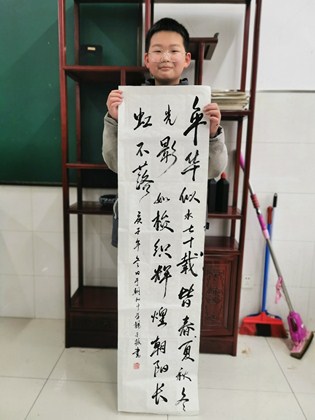 年华似水七十载皆春夏秋冬
光影如梭织辉煌朝阳长
虹不落
庚子年冬日
书